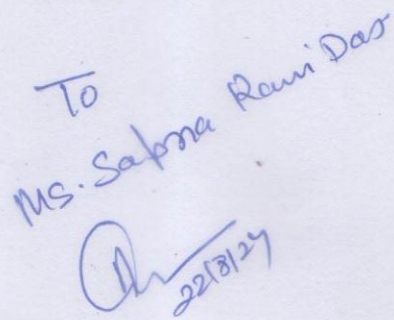 To
Ms. Sapna Rani Das
22/8/24